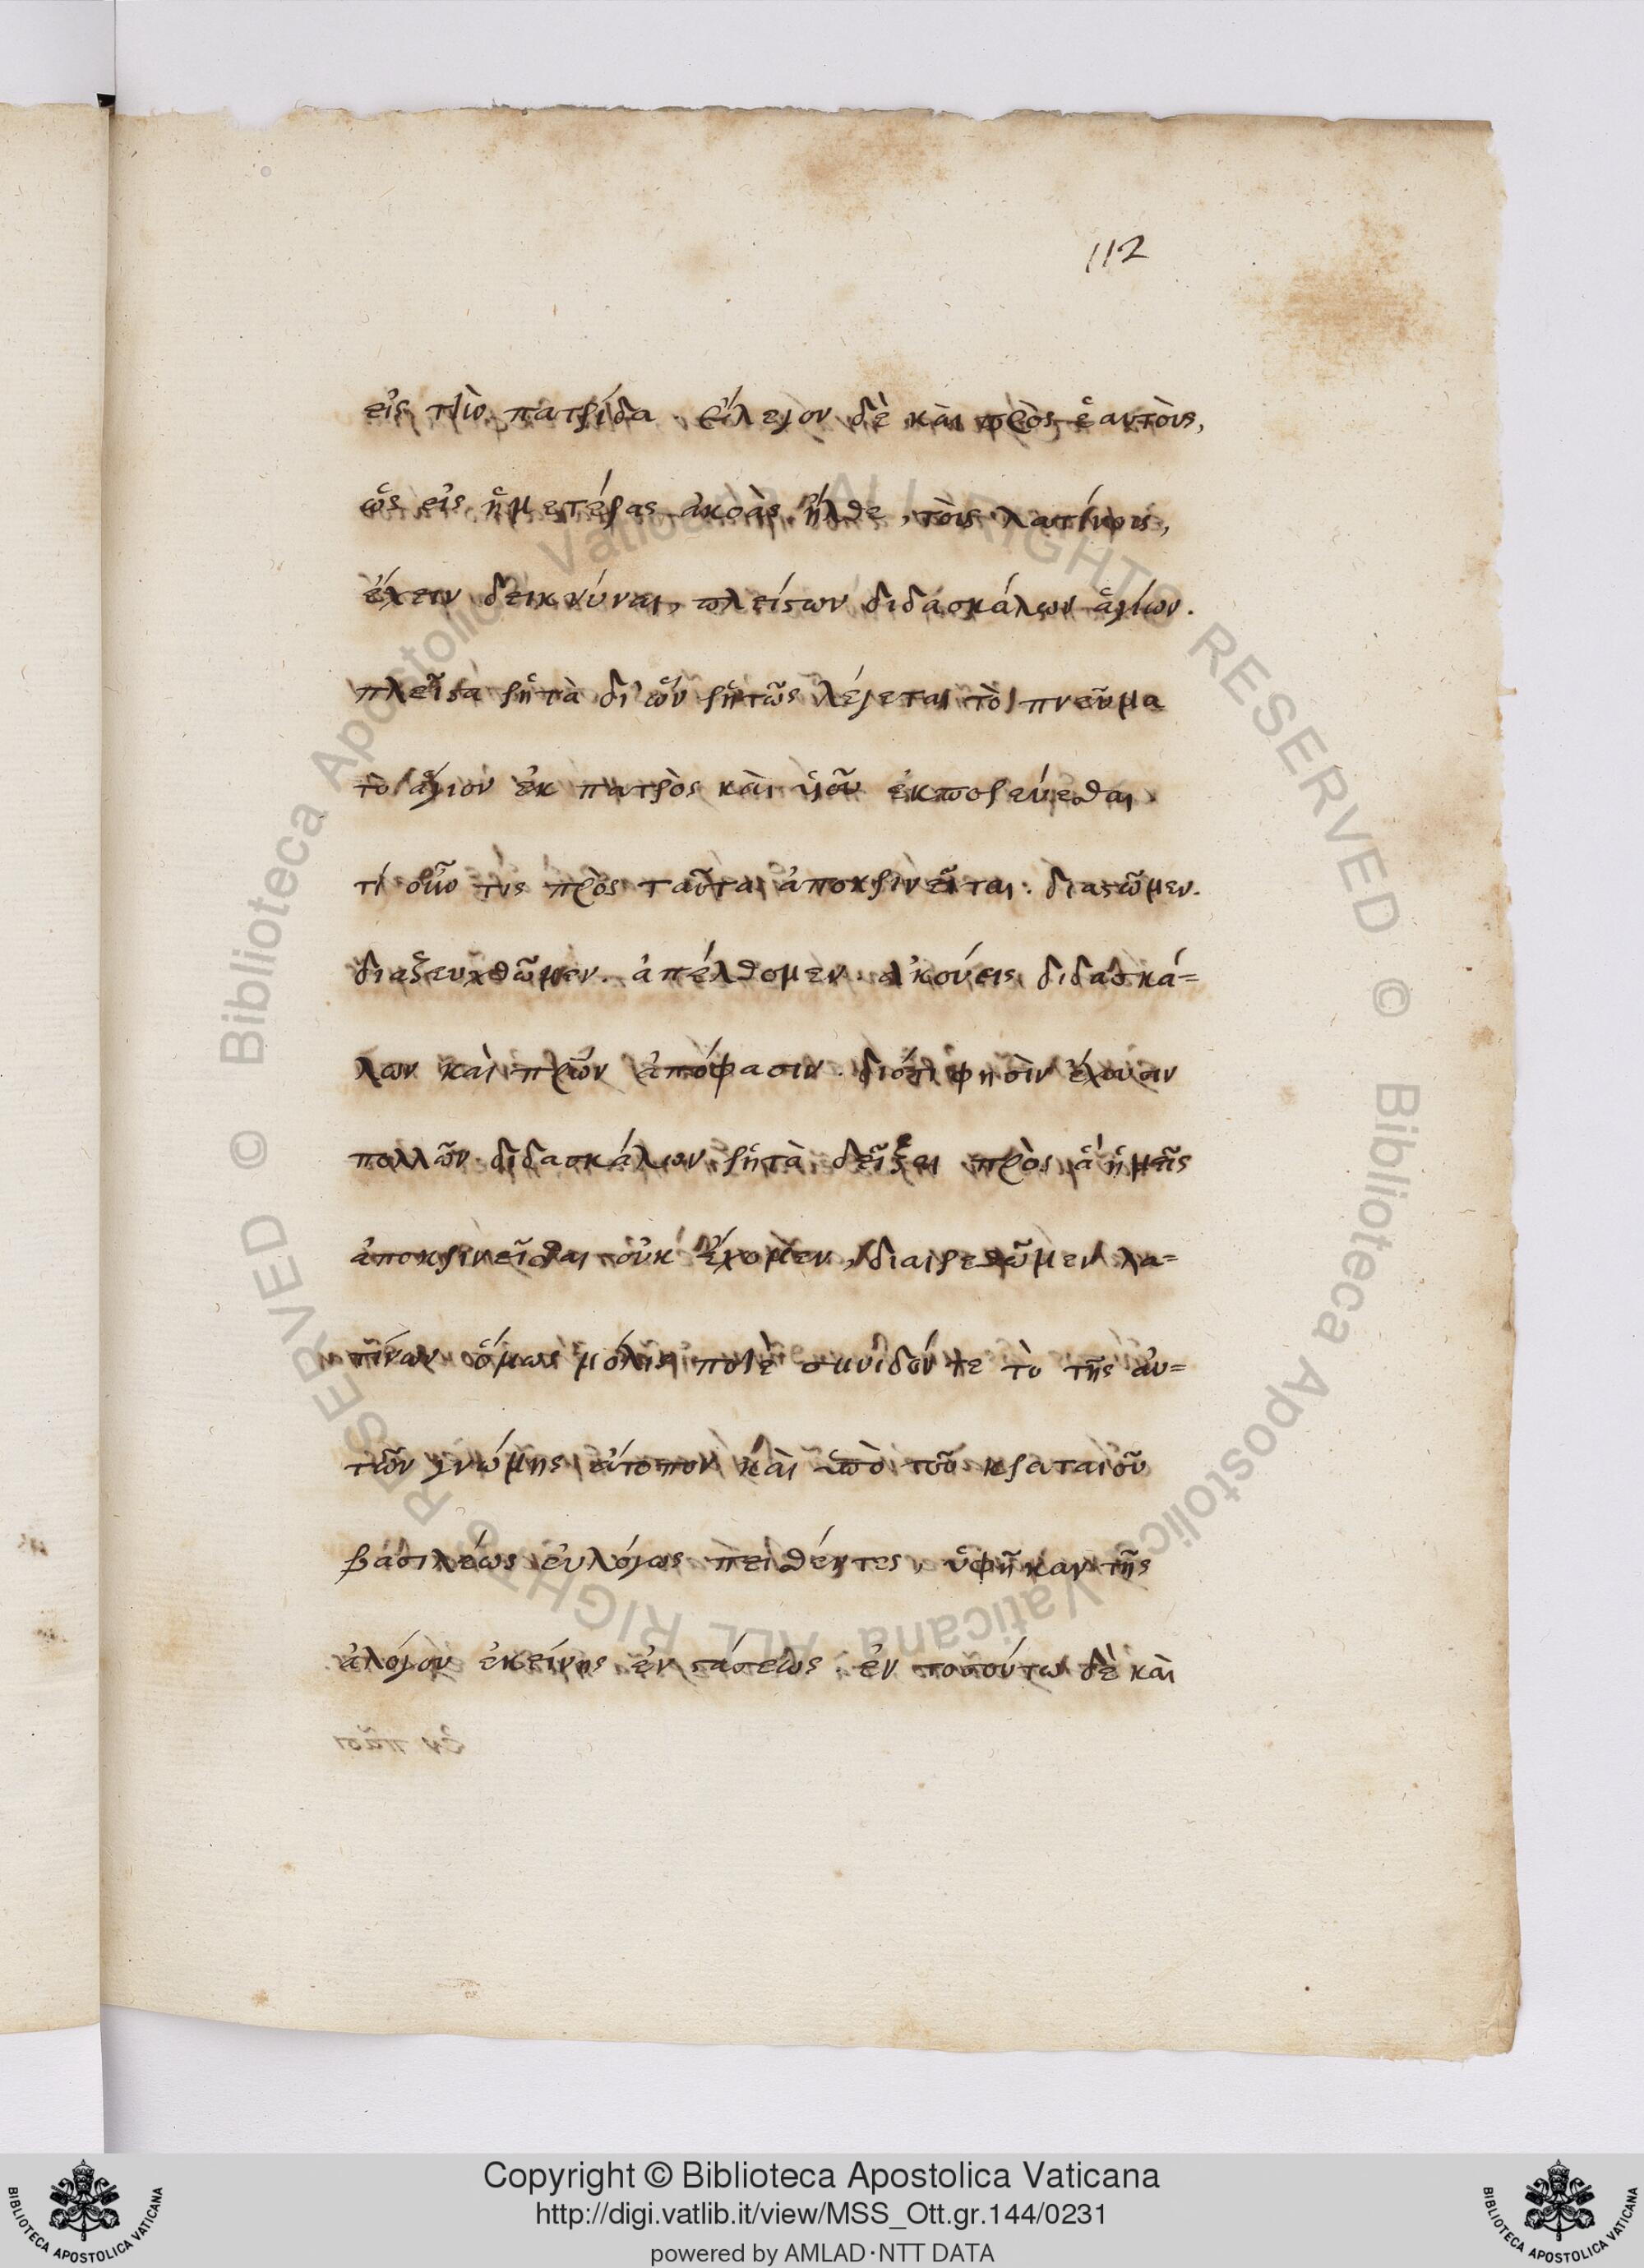 112
εἰς τὴν πατρίδα. ἔλεγον δὲ καὶ πρὸς ἑαυτοὺς,
ὡς εἰς ἡμετέρας ἀκοὰς ἦλθε, τοῖς λατίνοις,
ἔχειν δεικνύναι, πλείστων διδασκάλων ἁγίων.
πλεῖστα ῥητὰ δι' ὧν ῥητῶς λέγεται τὸ πνεῦμα
τὸ ἅγιον ἐκ πατρὸς καὶ υἱοῦ ἐκπορεύεσθαι
τί οὖν τις πρὸς ταῦτα ἀποκρινεῖται. διαστῶμεν.
διαζευχθῶμεν. ἀπέλθομεν. ἀκούεις διδασκά=
λων καὶ πρων ἀπόφασιν. διότι φησὶν ἔχουσιν
πολλῶν διδασκάλων ῥητὰ δεῖξαι πρὸς ἃ ἡμεῖς
ἀποκρινεῖσθαι οὐκ ἔχομεν, διαιρεθῶμεν λα=
τίνων ὅμως μόλις ποτὲ συνιδόντε τὸ τῆς αὐ=
τῶν γνώμης ἄτοπον καὶ ὑπὸ τοῦ κραταιοῦ
βασιλέως εὐλόγως πειθέντες, ὑφῆκαν τῆς
ἀλόγου ἐκείνης ἐνστάσεως. ἐν τοσούτω δὲ καὶ
Copyright © Biblioteca Apostolica Vaticana
http://digi.vatlib.it/view/MSS_Ott.gr.144/0231
powered by AMLAD·NTT DATA
BIBLIOTECA APOSTOLICA VATICANA
BIBLIOTECA APOSTOLICA VATICANA
© Biblioteca Apostolica Vaticana ALL RIGHTS RESERVED © Biblioteca Apostolica Vaticana ALL RIGHTS RESERVED